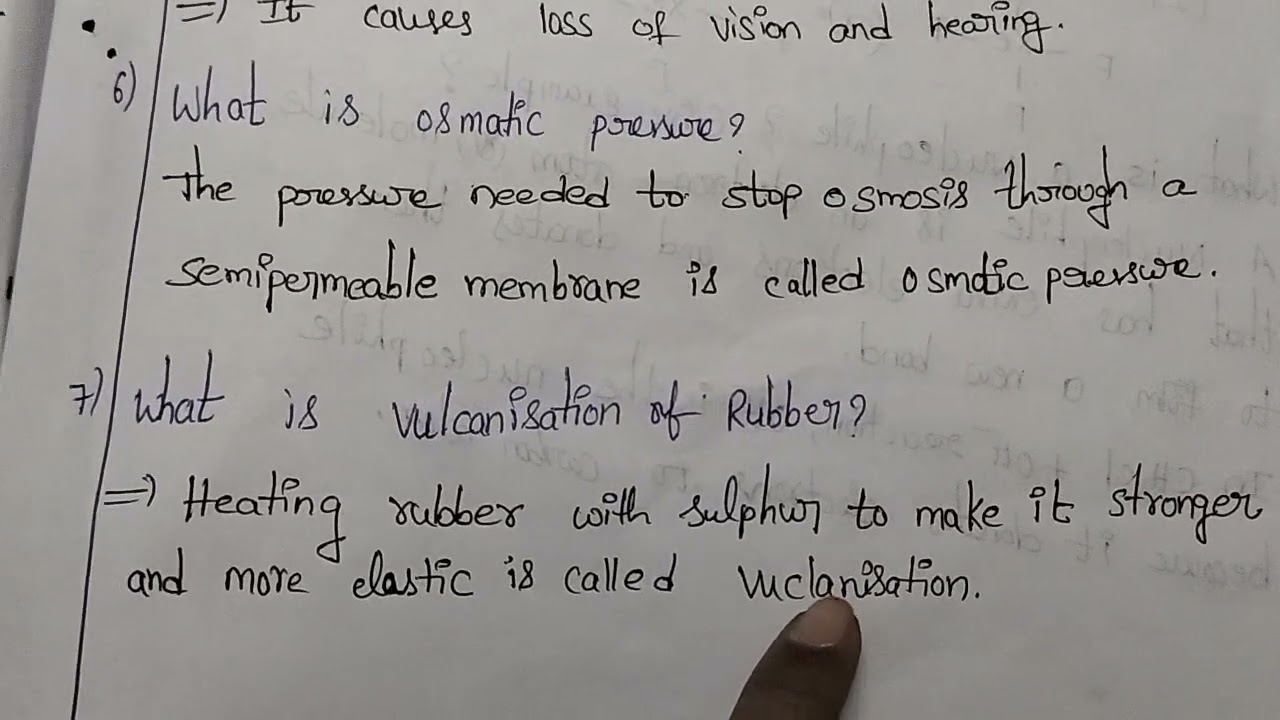 => It causes loss of vision and hearing.
6) What is osmatic pressure?
The pressure needed to stop osmosis through a
semipermeable membrane is called osmotic pressure.
7) What is vulcanisation of Rubber?
=> Heating rubber with sulphur to make it stronger
and more elastic is called vuclanisation.